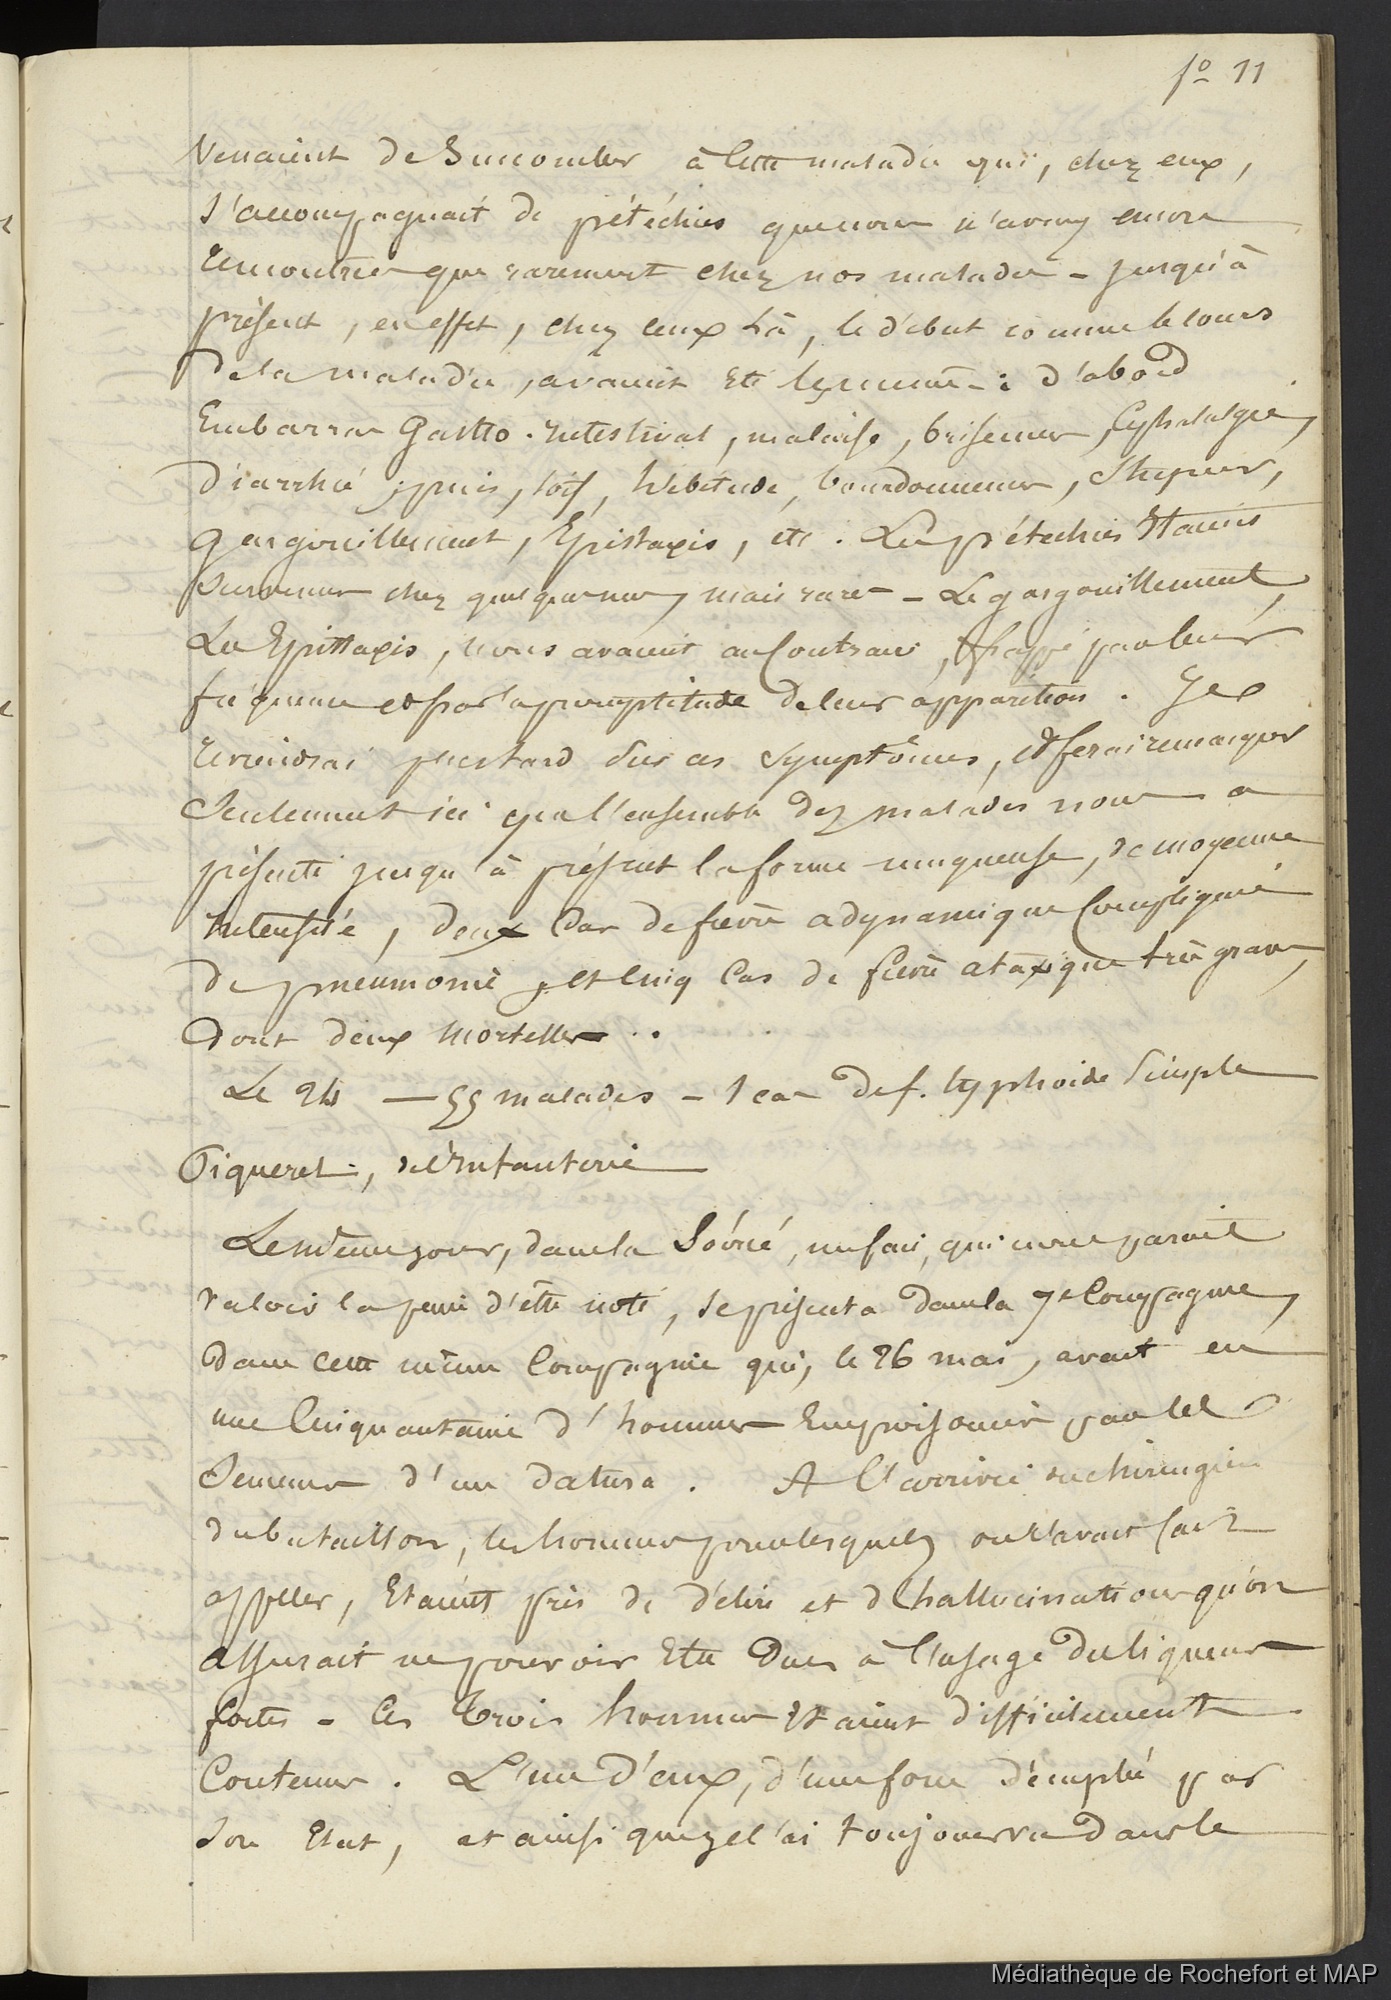 fº 11
venaient de succomber à cette maladie qui, chez eux,
s'accompagnait de pétéchies que nous n'avons encore
rencontrées que rarement chez nos malades - jusqu'à
présent, en effet, chez ceux là, le début comme le cours
de la maladie, avaient été les mêmes : d'abord
Embarras Gastro-intestinal, malaise, brisement, Cephalalgie,
diarrhée ; puis, soif, hébétude, bourdonnement, stupeur,
gargouillement, Epistaxis, etc. Les pétéchies étaient
survenues chez quelques uns, mais rares - Le gargouillement,
Les Epistaxis, nous avaient au Contraire, frappé par leur
fréquence et par la promptitude de leur apparition. Je
reviendrai plus tard sur ces symptômes, et ferai remarquer
seulement ici que l'ensemble des malades nous a
présenté jusqu'à présent la forme muqueuse, de moyenne
intensité, deux Cas de fièvre adynamique Compliquée
de pneumonie, et Cinq Cas de fièvre ataxique très grave,
dont deux mortelles..
Le 24 — 55 malades - 1 cas de f. typhoide simple
Piqueret, de l'infanterie
Le même jour, dans la Soirée, un fait, qui nous parait
valoir la peine d'être noté, se présenta dans la 7e Compagnie,
dans cette même Compagnie qui, le 26 mai, avait eu
une Cinquantaine d'hommes Empoisonnés par les
semences d'un datura. A l'arrivée du chirurgien
du bataillon, les hommes pour lesquels on l'avait fait
appeller, Etaient pris de délire et d'hallucinations qu'on
assurait ne pouvoir Etre dues à l'usage des liqueurs
fortes - Ces trois hommes étaient difficilement
Contenus. L'un d'eux, d'une force décuplée par
son Etat, et ainsi que je l'ai toujours vu dans le
Médiathèque de Rochefort et MAP